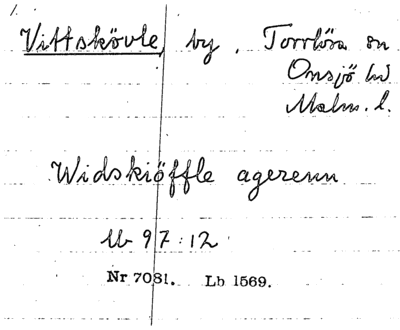 1.
Vittskövle, by, Torrlösa sn
Onsjö hd
Malm. l.
Widskiöffle agerenn
Ub 97:12
Nr 7081. Lb 1569.